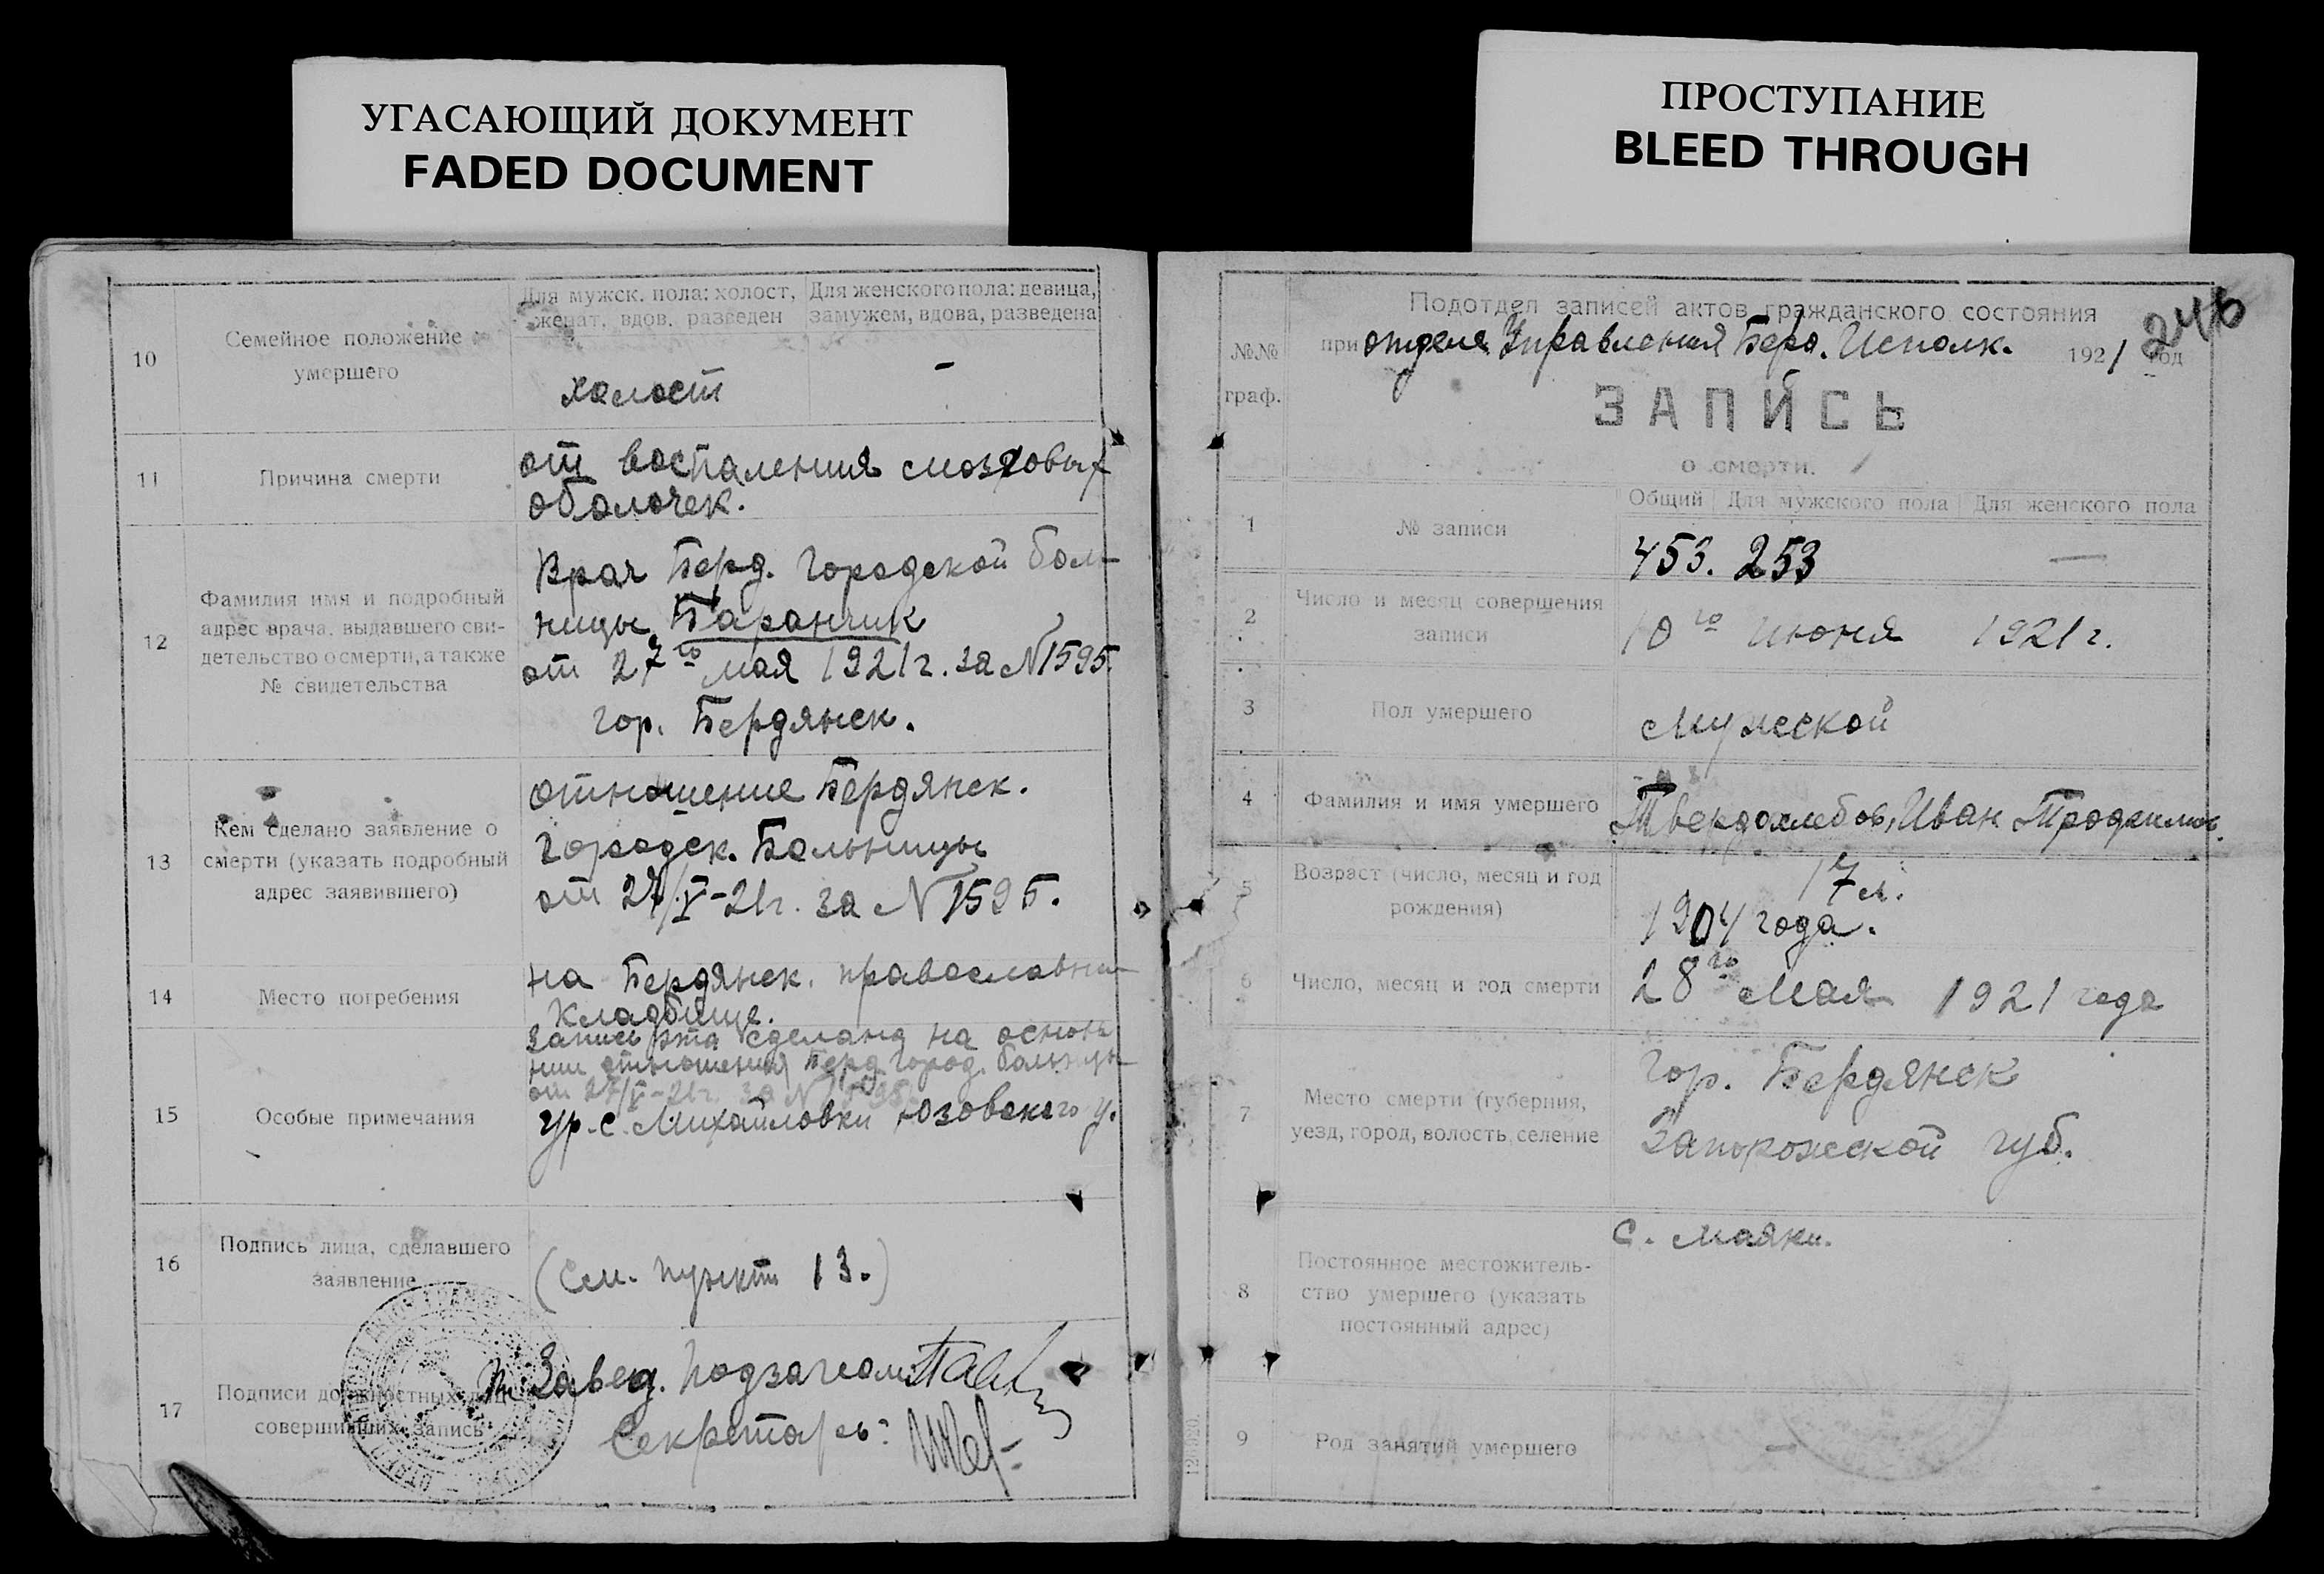 УГАСАЮЩИЙ ДОКУМЕНТ
FADED DOCUMENT
ПРОСТУПАНИЕ
BLEED THROUGH
10
Семейное положение
умершего
Для мужск. пола: холост,
женат, вдов, разведен
Для женского пола: девица,
замужем, вдова, разведена
холост
-
11
Причина смерти
от воспаления мозговых
оболочек.
12
Фамилия имя и подробный
адрес врача, выдавшего сви-
детельство о смерти, а также
№ свидетельства
Врач Берд. Городской бол-
ницы Баранчик
от 27го мая 1921 г. за №1595.
гор. Бердянск.
13
Кем сделано заявление о
смерти (указать подробный
адрес заявившего)
отношение Бердянск.
Городск. Больницы
от 27/V-21г. за №1595.
14
Место погребения
на Бердянск. православн
кладбище.
15
Особые примечания
Запись эта сделана на основа
нии отношения Берд. город. больницы
от 27/V-21г. за №1595.
ур. с. Михайловки Юзовского у.
16
Подпись лица, сделавшего
заявление
(См. пункт 13.)
17
Подписи должностных лиц
совершивших запись
Завед. Подзагсом
Секретарь:
№№
граф.
Подотдел записей актов гражданского состояния
при отделе Управления Берд. Исполк. 1921 год
246
ЗАПИСЬ
о смерти.
1
№ записи
Общий
Для мужского пола
Для женского пола
453. 253
—
2
Число и месяц совершения
записи
10го июня 1921 г.
3
Пол умершего
Мужской
4
Фамилия и имя умершего
Твердохлебов, Иван Трофимов.
5
Возраст (число, месяц и год
рождения)
17 л.
1904 года.
6
Число, месяц и год смерти
28го Мая 1921 года
7
Место смерти (губерния,
уезд, город, волость, селение
гор. Бердянск
Запорожской губ.
8
Постоянное местожитель-
ство умершего (указать
постоянный адрес)
с. Маяки.
9
Род занятий умершего
—